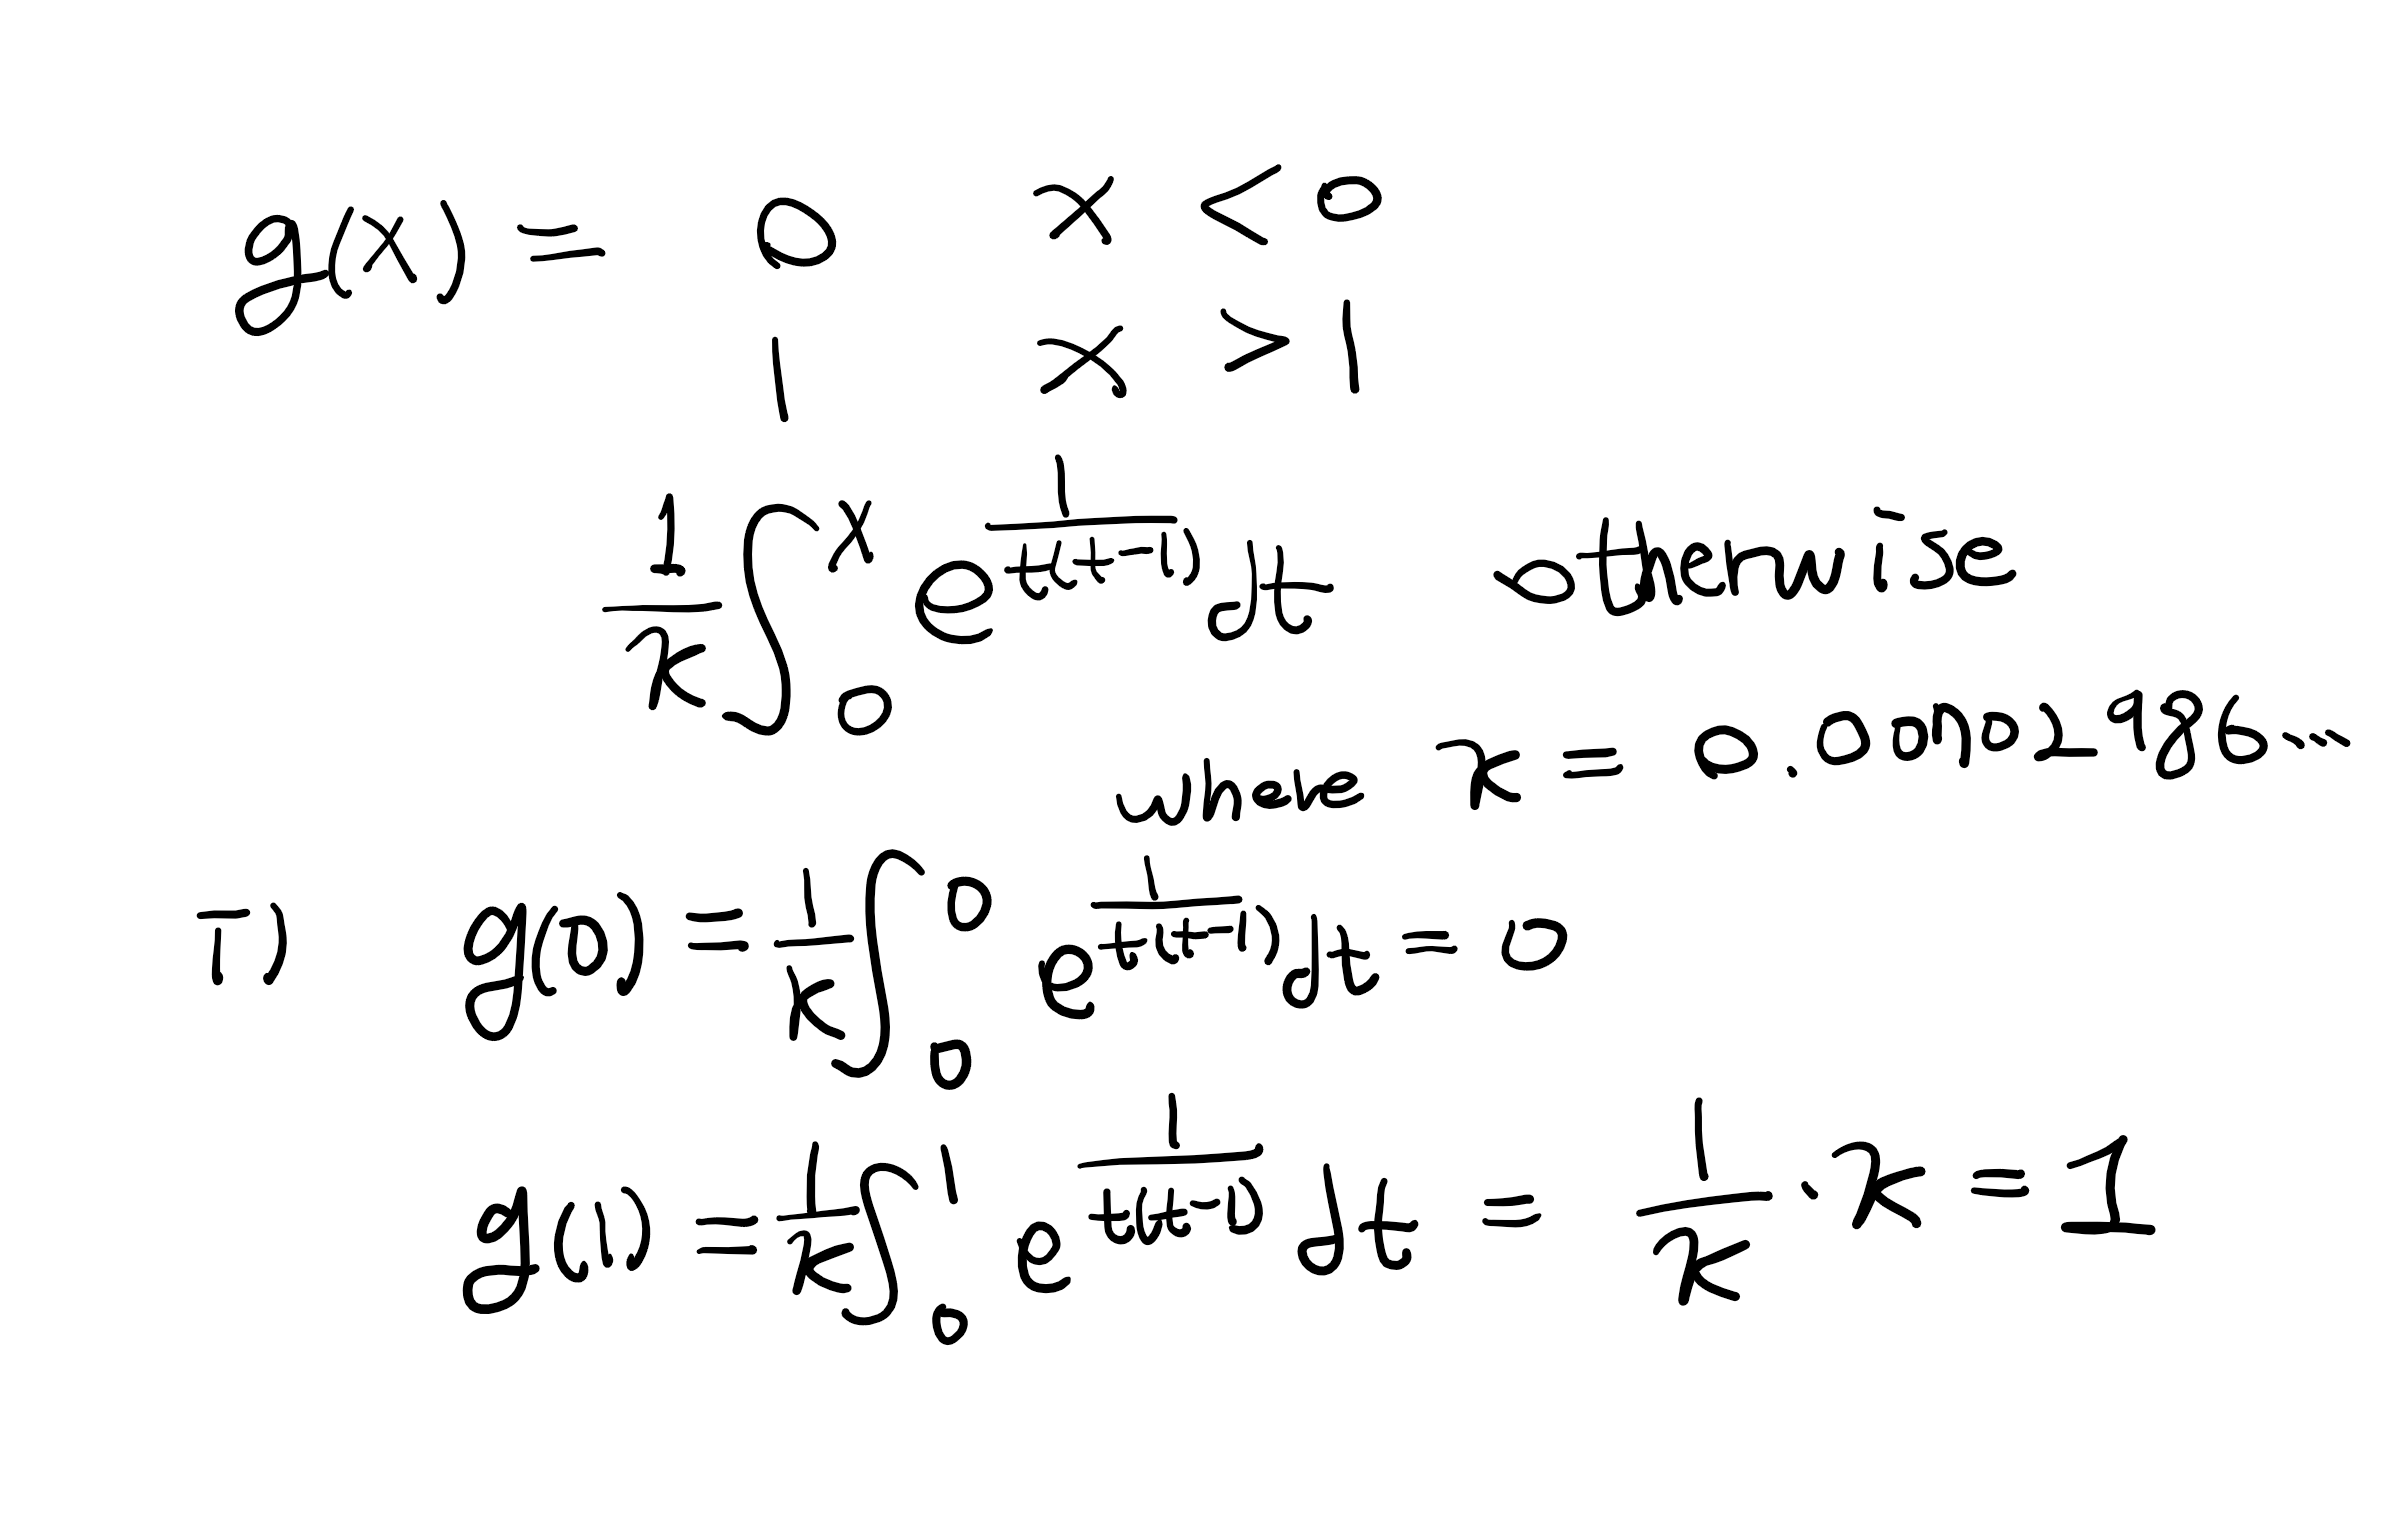 g(x) = 0 x < 0
1 x > 1
1/k ∫₀ˣ e^(1/(t(t-1))) dt otherwise
where k = 0.00702986...
I) g(0) = 1/k ∫₀⁰ e^(1/(t(t-1))) dt = 0
g(1) = 1/k ∫₀¹ e^(1/(t(t-1))) dt = 1/k · k = 1